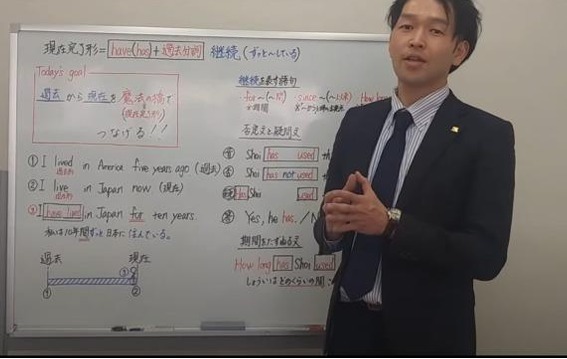 現在完了形=have(has)+過去分詞 継続(ずっと〜している)
Today's goal
過去から現在を魔法の橋で
(現在完了形)
つなげる!!
① I lived in America five years ago (過去)
② I live in Japan now (現在)
③ I have lived in Japan for ten years.
私は10年間ずっと日本に住んでいる。
過去 現在
① ③ ②
継続を表す語句
for 〜 since 〜 How
否定文と疑問文
Shoi has used
Shoi has not used
Has Shoi used
Yes, he has. / N
期間をたずねる文
How long has Shoi used
しょういはどのくらいの間